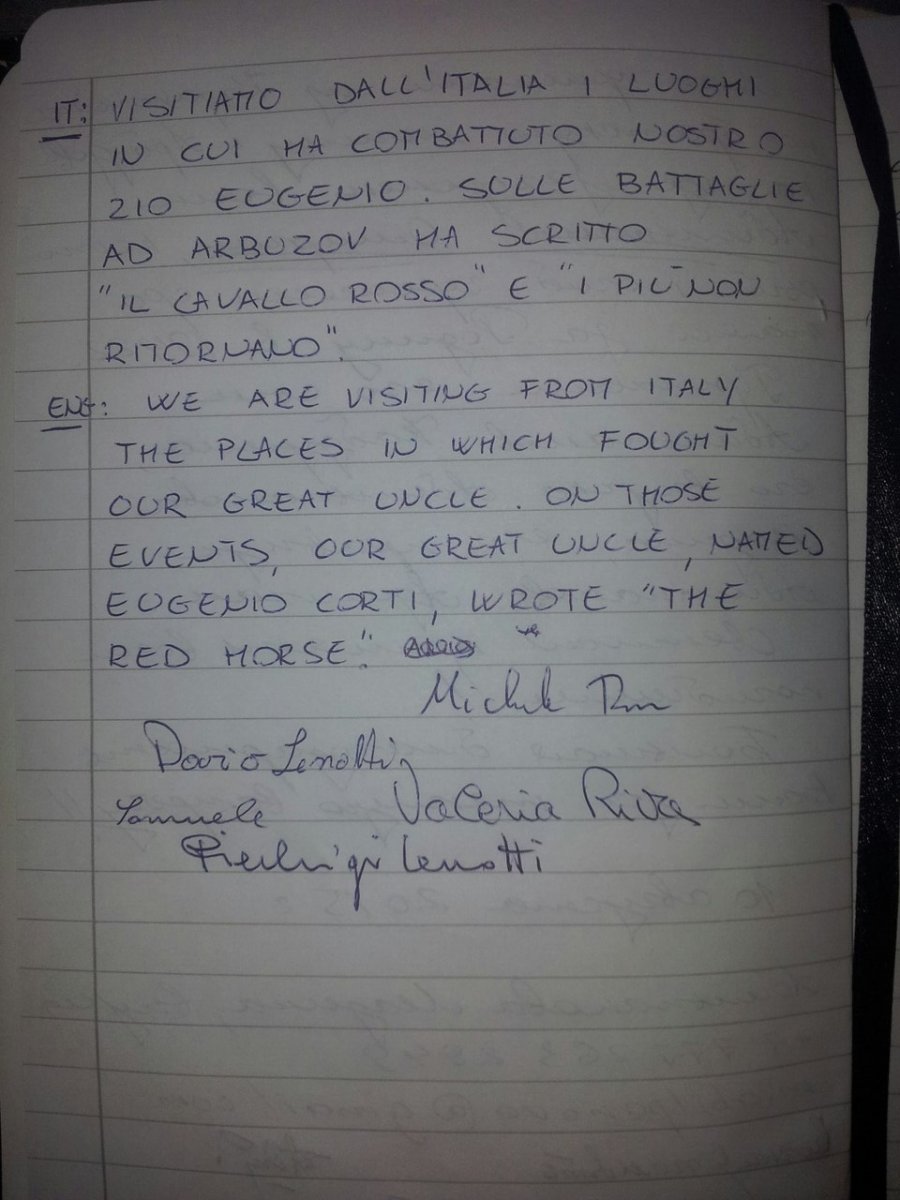 IT: VISITIAMO DALL'ITALIA I LUOGHI
IN CUI HA COMBATTUTO NOSTRO
ZIO EUGENIO. SULLE BATTAGLIE
AD ARBUZOV HA SCRITTO
"IL CAVALLO ROSSO" E "I PIÙ NON
RITORNANO".
ENG: WE ARE VISITING FROM ITALY
THE PLACES IN WHICH FOUGHT
OUR GREAT UNCLE. ON THOSE
EVENTS, OUR GREAT UNCLE, NAMED
EUGENIO CORTI, WROTE "THE
RED HORSE".
Michele
Dario Lenotti
Samuele Valeria Riva
Pierluigi Lenotti